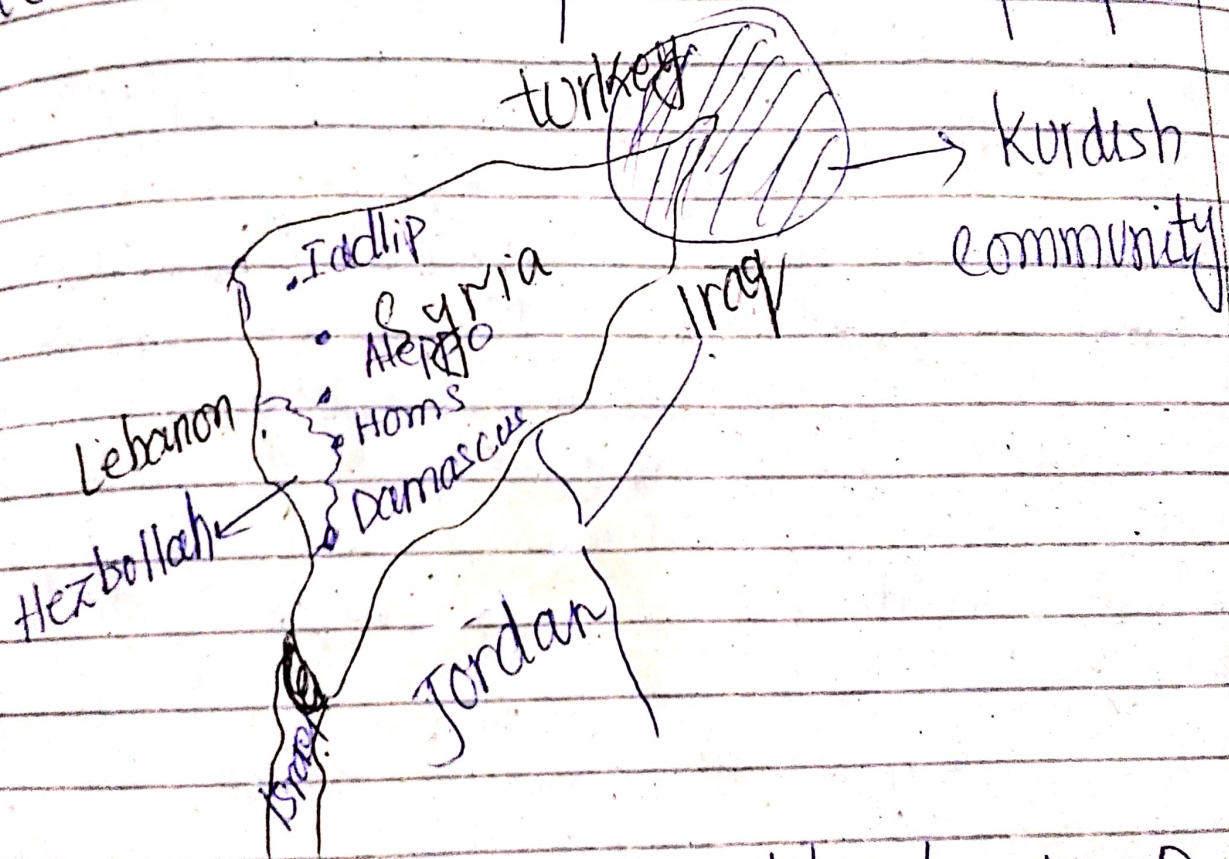 turkey
Kurdish
community
Iadlip
Syria
Iraq
Aleppo
Lebanon
Homs
Damascus
Hezbollah
Jordan
Israel